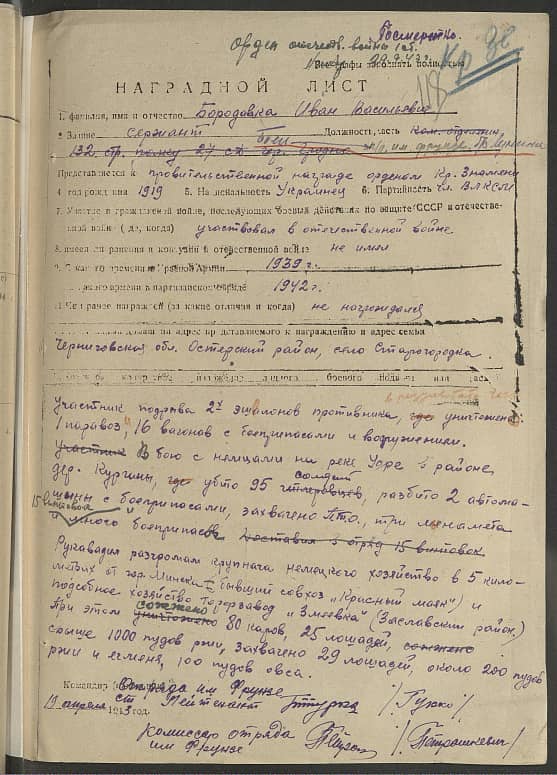 Посмертно.
Орден отечеств. войны 1 ст.
Все графы заполнять полностью
НАГРАДНОЙ ЛИСТ
1. Фамилия, имя и отчество Бородавка Иван Васильевич
2. Звание сержант Должность, часть ком. отделен.
боец
п/о им. Фрунзе
Представляется к правительственной награде орденом Кр. Знамени
4. год рождения 1919 5. Национальность Украинец 6. Партийность чл. ВЛКСМ
7. Участие в гражданской войне, последующих боевых действиях по защите СССР и отечественной войне (где, когда) участвовал в отечественной войне
8. имеет ли ранения и контузии в отечественной войне не имел
9. С какого времени в Красной Армии 1939 г.
времени в партизанском отряде 1942 г.
11. Чем ранее награжден (за какие отличия и когда) не награждался
адрес представляемого к награждению и адрес семьи
Черниговская обл. Остерский район, село Старогородка.
изложение личного боевого подвига или заслуг
Участник подрыва 2х эшалонов противника, где уничтожено
1 паравоз, 16 вагонов с боеприпасами и вооружением.
Участник В бою с немцами на реке Уфе в районе
дер. Курганы, где убито 95 гитлеровцев, разбито 2 автома-
солдат
шины с боеприпасами, захвачено ПТО, три миномета
15 винтовок
и много боеприпасов доставил в отряд 15 винтовок
Рукавадил разгромам крупнага немецкого хозяйство в 5 кило-
метрах от гор. Минска (бывший совхоз "Красный маяк") и
подсобное хозяйство Торфзавод "Змеевка" (Заславский район)
При этом уничтожено 80 каров, 25 лошадей, сожжено
сожжено
свыше 1000 пудов ржи, захвачено 29 лошадей, около 200 пудов
ржи и есменя, 100 пудов овса.
Командир Отряда им Фрунзе
ст Лейтенант /Гузко/
19 апреля 1943 год.
Комиссар отряда
им Фрунзе /Петрашкевич/